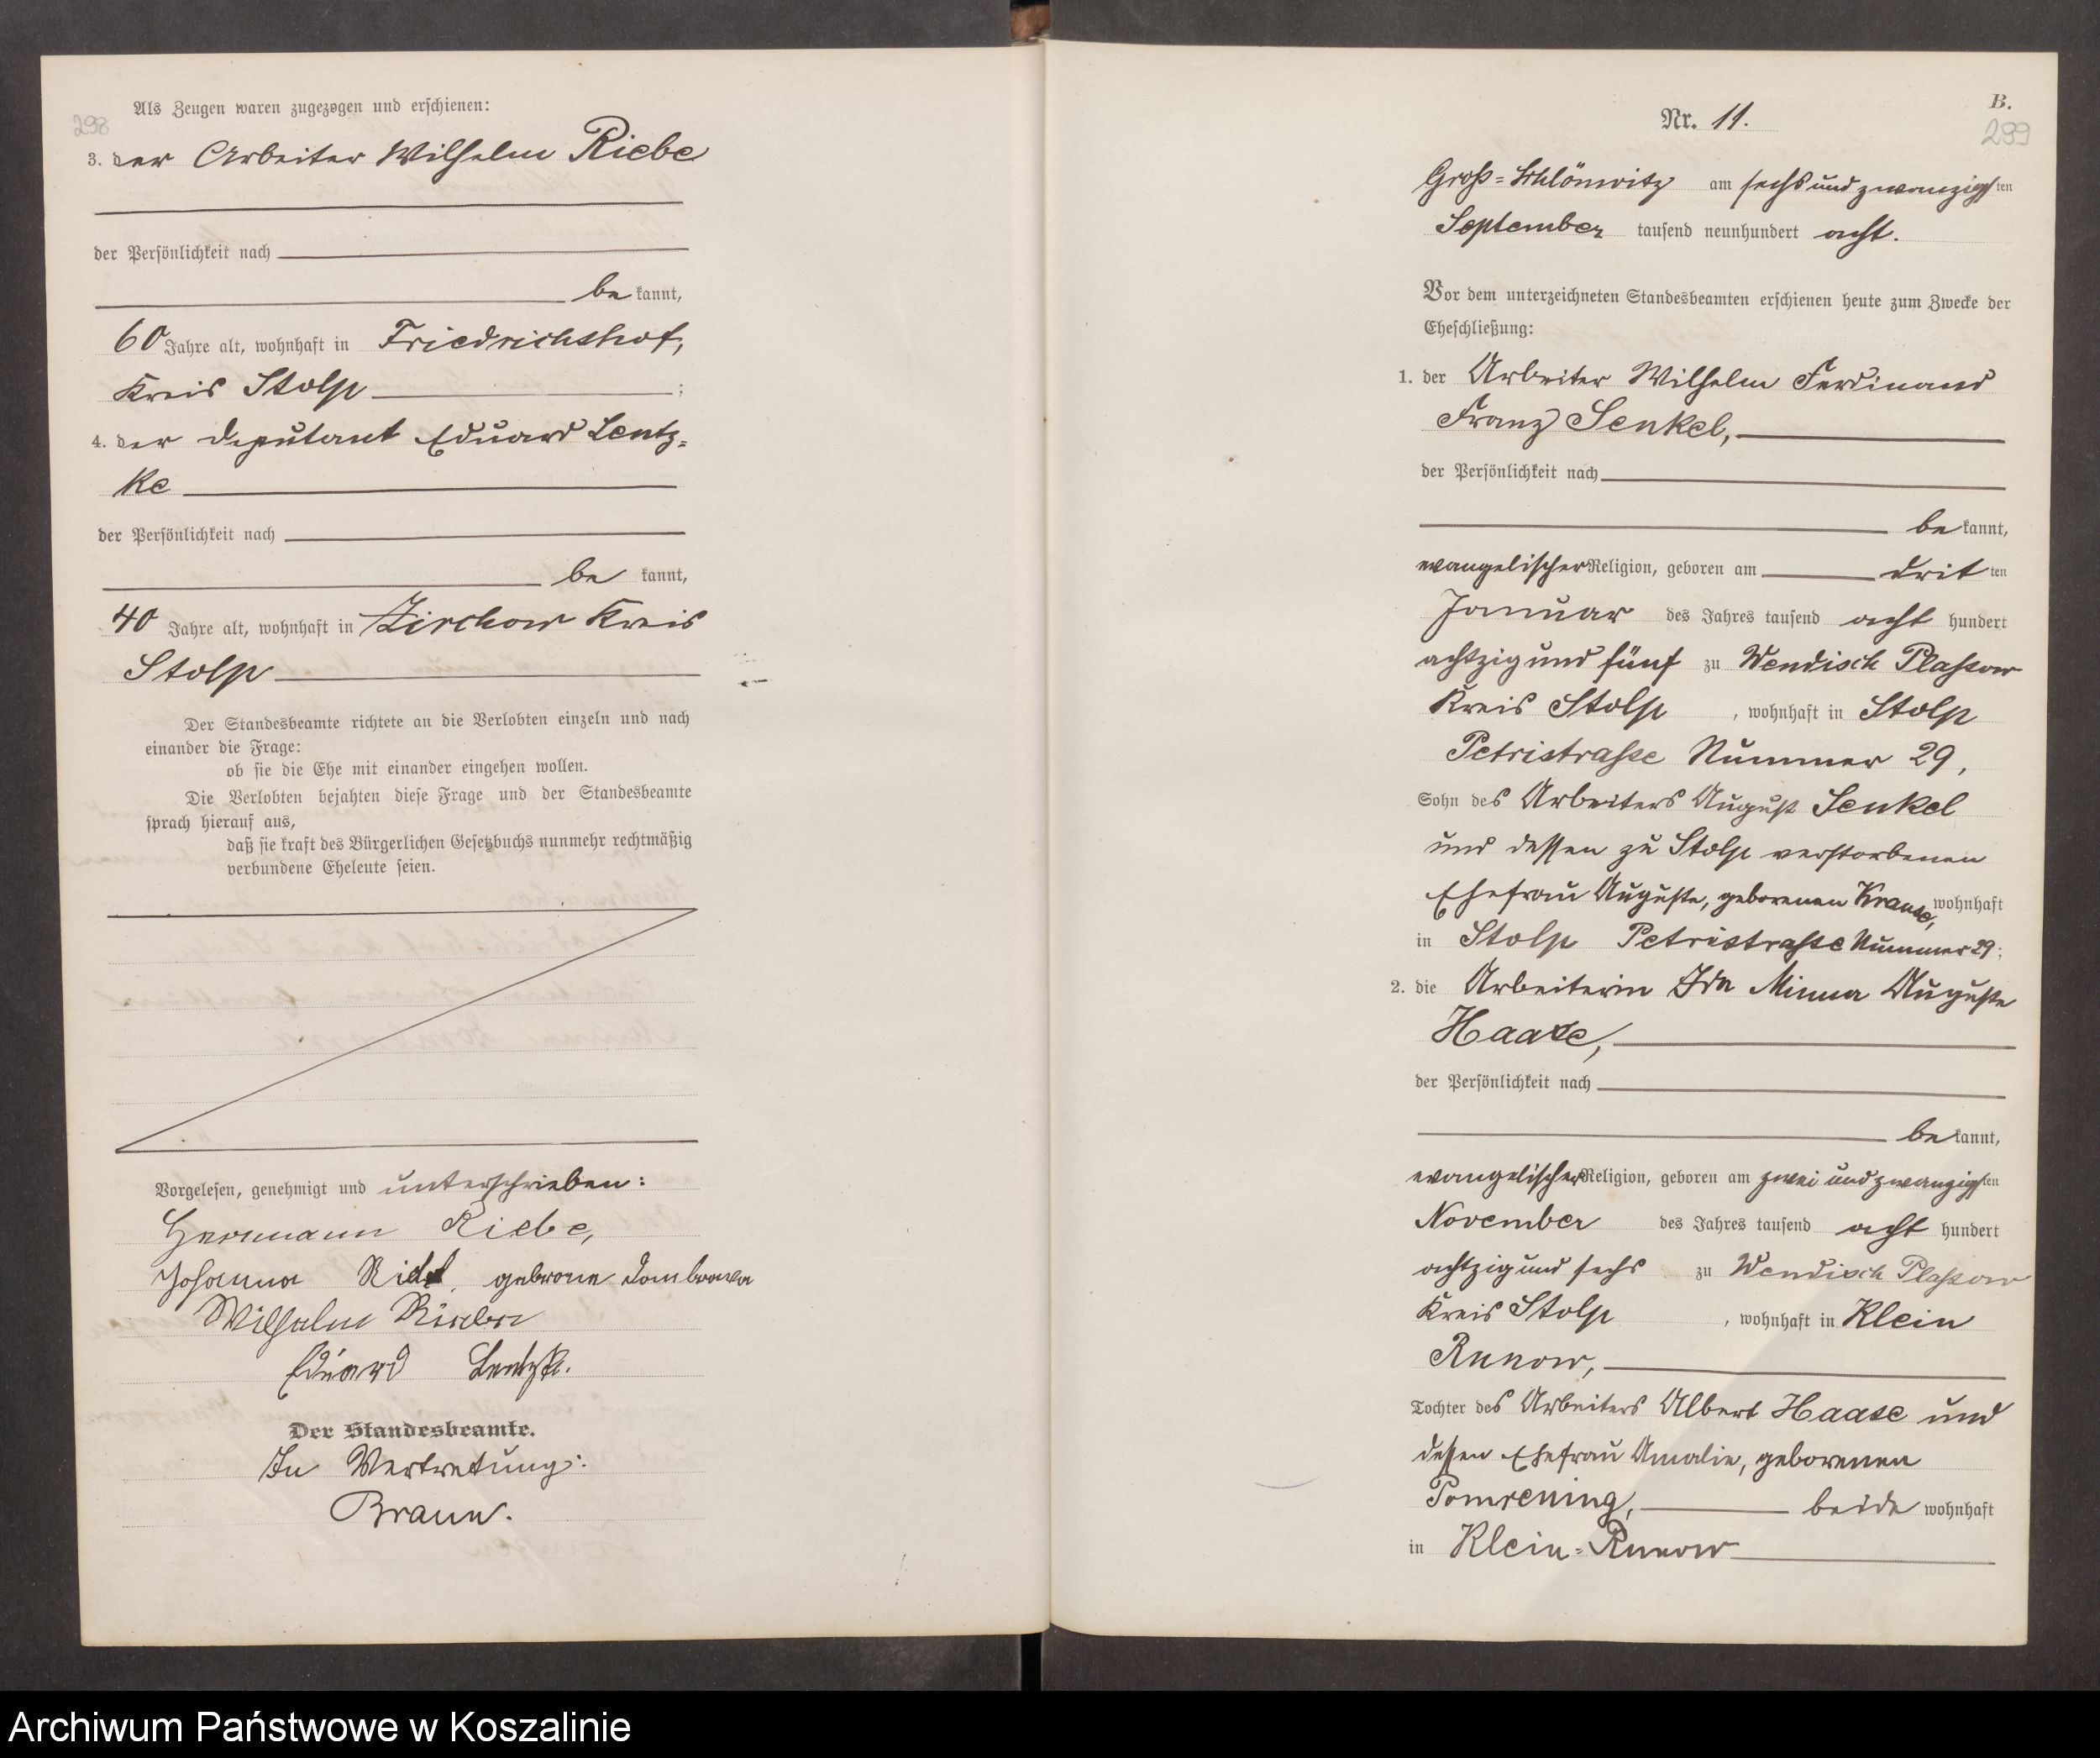 298
Als Zeugen waren zugezogen und erschienen:
3. der Arbeiter Wilhelm Riebe
der Persönlichkeit nach
bekannt,
60 Jahre alt, wohnhaft in Friedrichshof,
Kreis Stolp ;
4. der Deputant Eduard Lentz-
ke
der Persönlichkeit nach
be kannt,
40 Jahre alt, wohnhaft in Zirchow Kreis
Stolp
Der Standesbeamte richtete an die Verlobten einzeln und nach
einander die Frage:
ob sie die Ehe mit einander eingehen wollen.
Die Verlobten bejahten diese Frage und der Standesbeamte
sprach hierauf aus,
daß sie kraft des Bürgerlichen Gesetzbuchs nunmehr rechtmäßig
verbundene Eheleute seien.
Vorgelesen, genehmigt und unterschrieben:
Hermann Riebe,
Johanna geborene Dombrowa
Wilhelm
Eduard Lentzke.
Der Standesbeamte.
In Vertretung:
Braun.
B.
299
Nr. 11.
Groß-Schlönwitz am sechs und zwanzigsten
September tausend neunhundert acht.
Vor dem unterzeichneten Standesbeamten erschienen heute zum Zwecke der
Eheschließung:
1. der Arbeiter Wilhelm Ferdinand
Franz Senkel,
der Persönlichkeit nach
bekannt,
evangelischer Religion, geboren am dritten
Januar des Jahres tausend acht hundert
achtzig und fünf zu Wendisch Plassow
Kreis Stolp , wohnhaft in Stolp
Petristrasse Nummer 29,
Sohn des Arbeiters August Senkel
und dessen zu Stolp verstorbenen
Ehefrau Auguste, geborenen Krause, wohnhaft
in Stolp Petristrasse Nummer 29;
2. die Arbeiterin Ida Minna Auguste
Haase,
der Persönlichkeit nach
bekannt,
evangelischer Religion, geboren am zwei und zwanzigsten
November des Jahres tausend acht hundert
achtzig und sechs zu Wendisch Plassow
Kreis Stolp , wohnhaft in Klein
Runow,
Tochter des Arbeiters Albert Haase und
dessen Ehefrau Amalie, geborenen
Pomrening, beide wohnhaft
in Klein-Runow
Archiwum Państwowe w Koszalinie